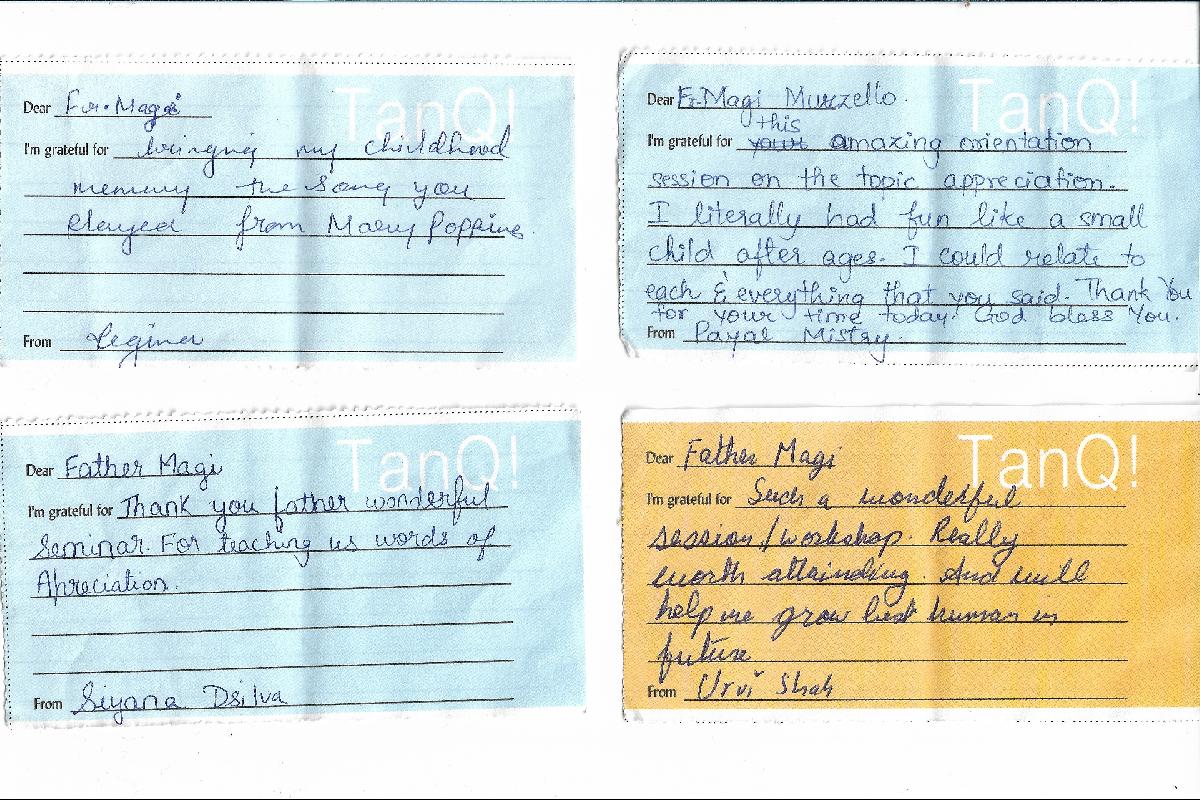 TanQ!
Dear Fr. Magi
I'm grateful for bringing my childhood
memory the song you
played from Mary Poppins.
From Regina
TanQ!
Dear Fr. Magi Murzello.
this
I'm grateful for your amazing orientation
session on the topic appreciation.
I literally had fun like a small
child after ages. I could relate to
each & everything that you said. Thank You
for your time today. God bless You.
From Payal Mistry.
TanQ!
Dear Father Magi
I'm grateful for Thank you father wonderful
Seminar. For teaching us words of
Apreciation.
From Siyana Dsilva
TanQ!
Dear Father Magi
I'm grateful for Such a wonderful
session/workshop. Really
worth attainding. And will
help me grow best human in
future
From Urvi Shah